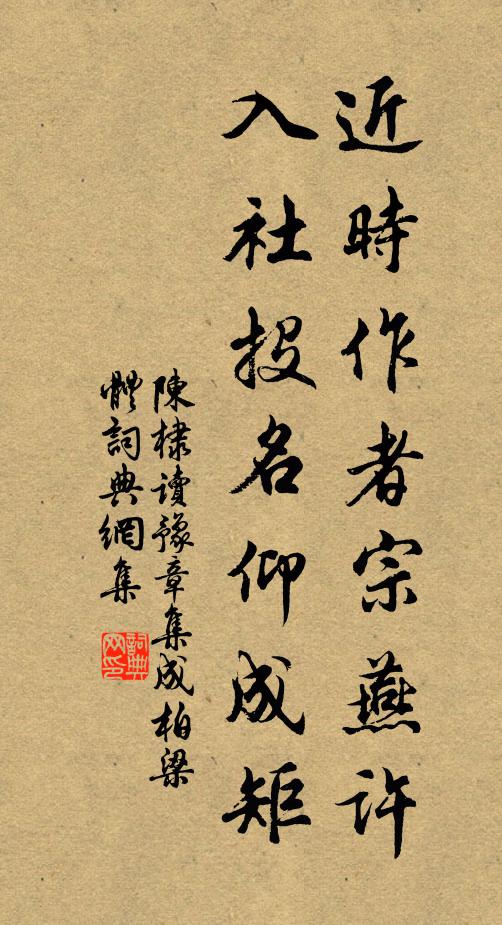 近時作者宗燕許
入社投名仰成矩
陳棣讀豫章集成柏梁
體詞典網集
詞典
网印